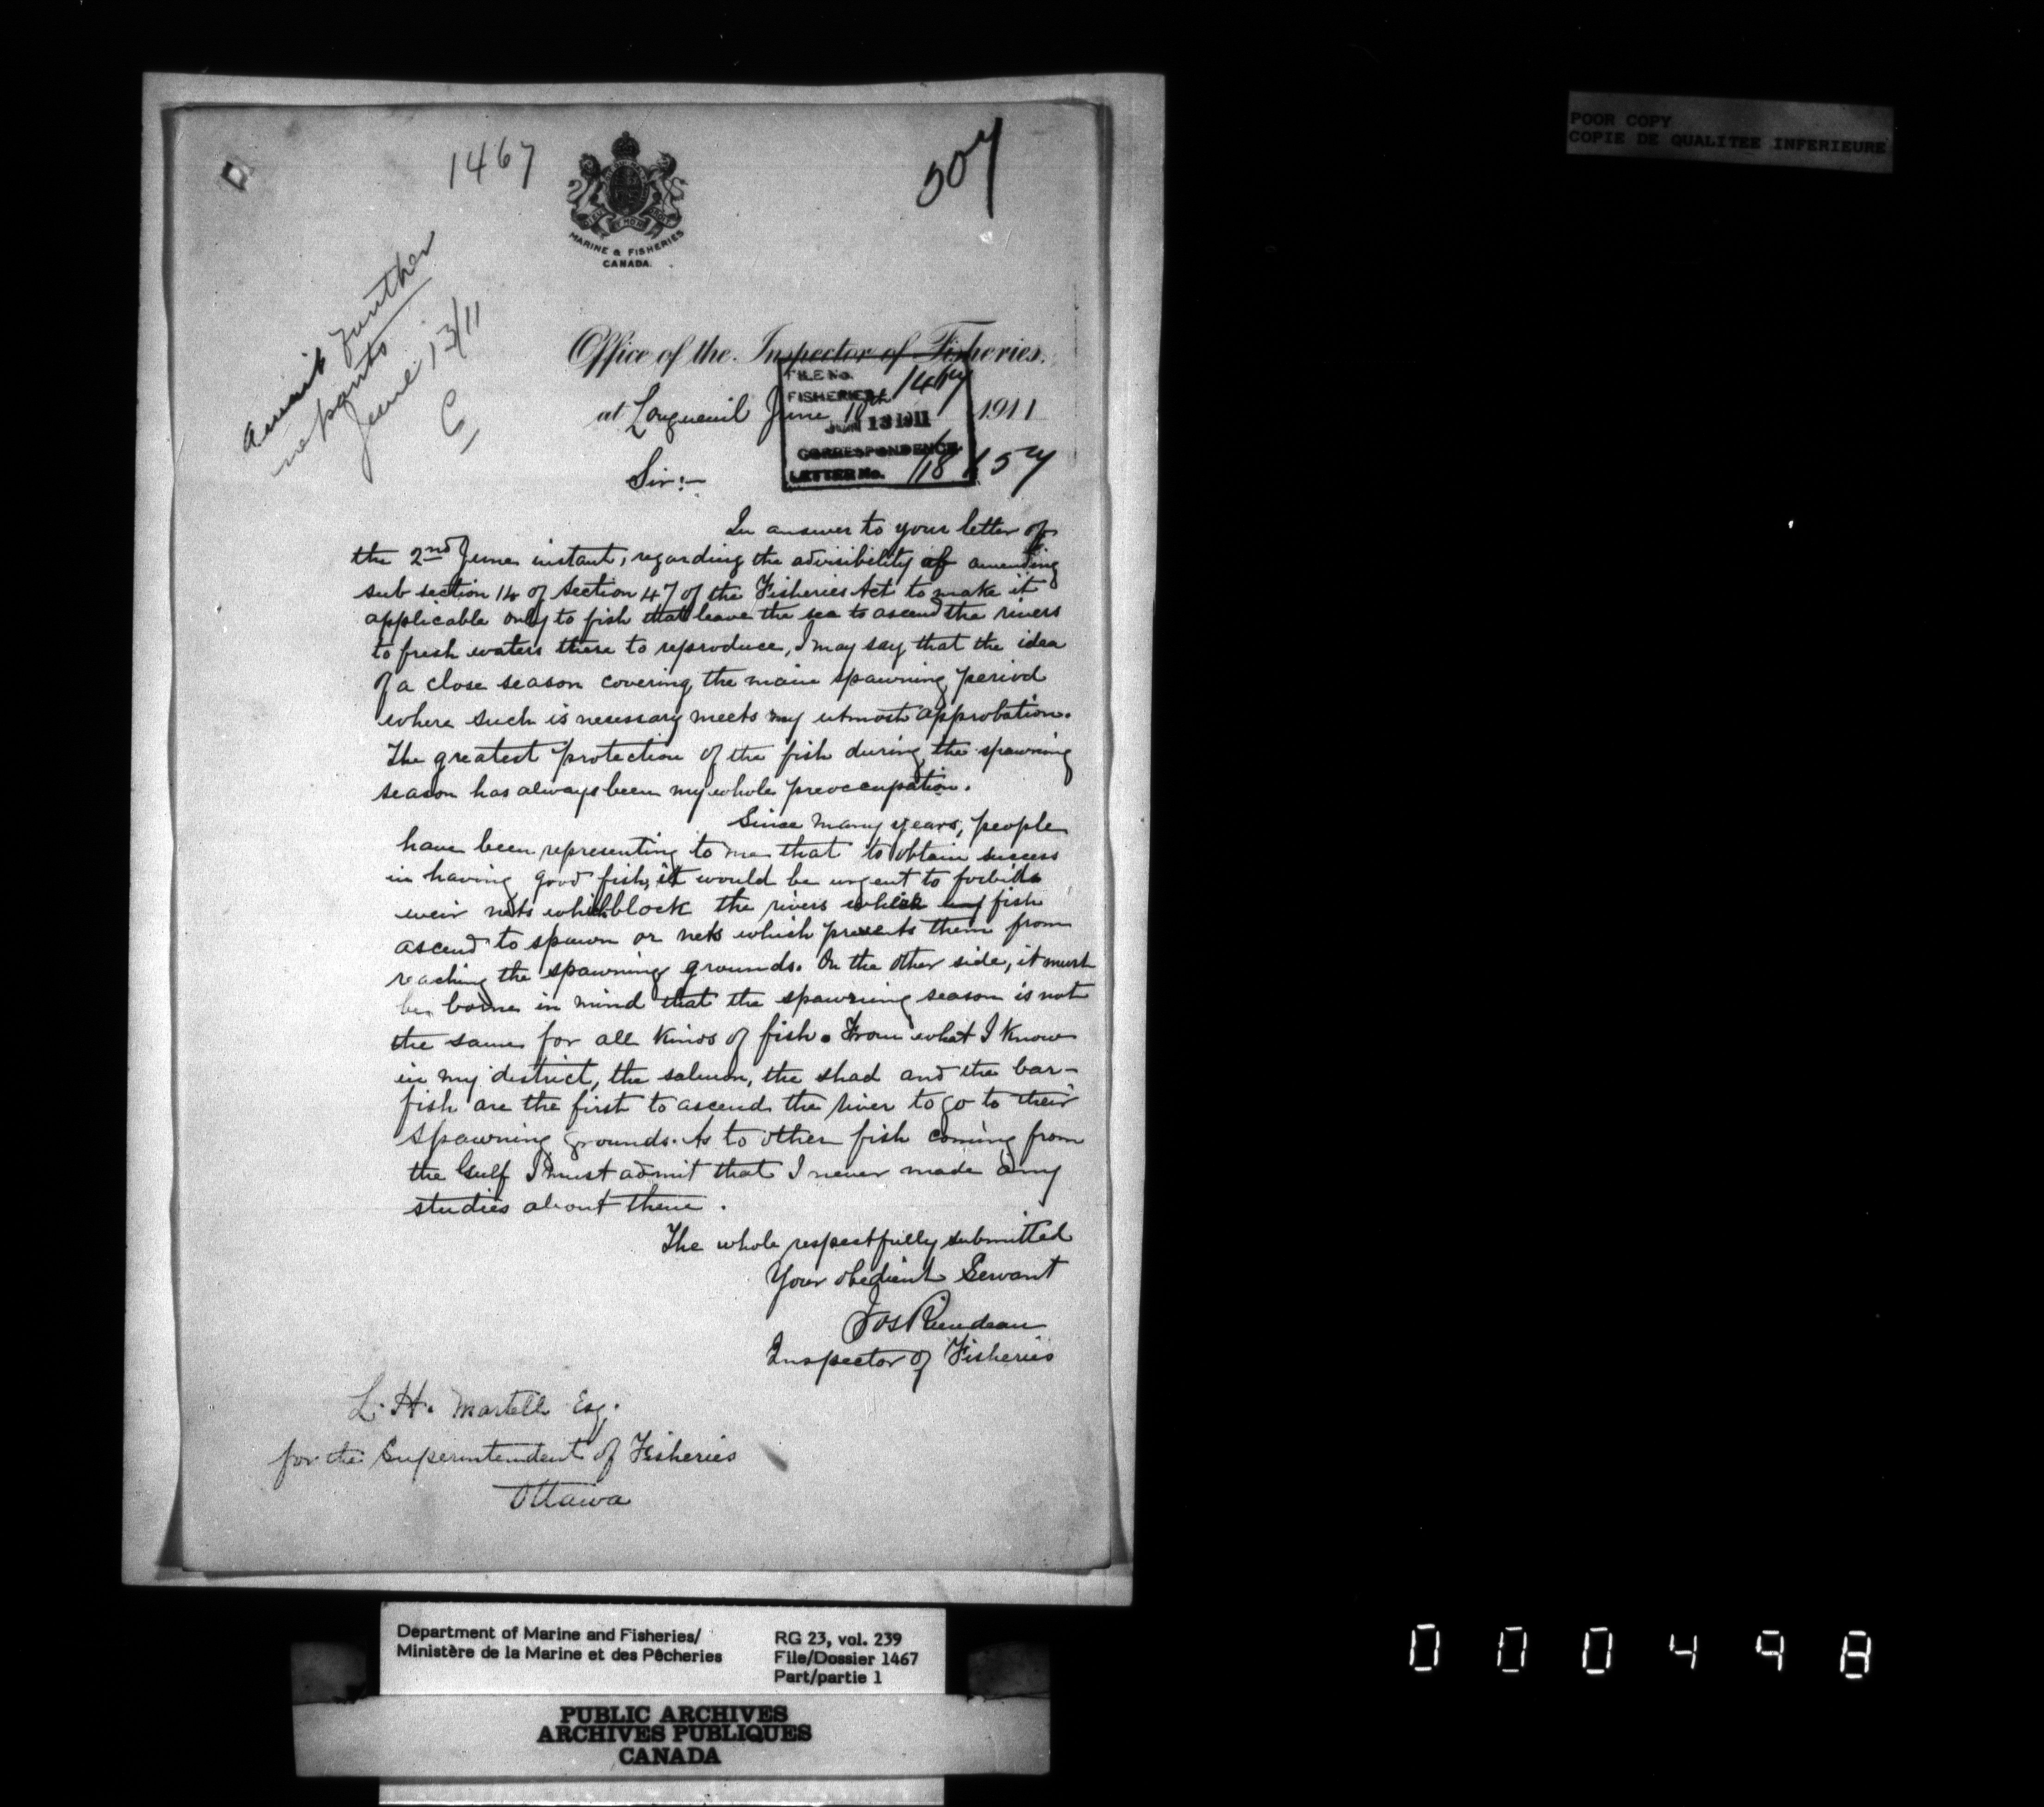 POOR COPY
COPIE DE QUALITEE INFERIEURE
1467
507
MARINE & FISHERIES
CANADA.
await further
reports
June 13/11
Office of the Inspector of Fisheries.
FILE No. 1467
FISHERIES
at Longueuil June 10th 1911
JUN 13 1911
CORRESPONDENCE
LETTER No.
Sir:-
In answer to your letter of
the 2nd June instant, regarding the advisibility of amending
sub section 14 of Section 47 of the Fisheries Act to make it
applicable only to fish that leave the sea to ascend the rivers
to fresh waters there to reproduce, I may say that the idea
of a close season covering the main spawning period
where such is necessary meets my utmost approbation.
The greatest protection of the fish during the spawning
season has always been my whole preoccupation.
Since many years, people
have been representing to me that to obtain success
in having good fish, it would be urgent to forbid
weir nets which block the rivers which fish
ascend to spawn or nets which prevents them from
reaching the spawning grounds. On the other side, it must
be borne in mind that the spawning season is not
the same for all kinds of fish. From what I know
in my district, the salmon, the shad and the bar-
fish are the first to ascend the river to go to their
spawning grounds. As to other fish coming from
the Gulf I must admit that I never made any
studies about them.
The whole respectfully submitted
Your obedient Servant
Jos Riendeau
Inspector of Fisheries
L. H. Martell Esq.
for the Superintendent of Fisheries
Ottawa
Department of Marine and Fisheries/
Ministère de la Marine et des Pêcheries
RG 23, vol. 239
File/Dossier 1467
Part/partie 1
PUBLIC ARCHIVES
ARCHIVES PUBLIQUES
CANADA
000498